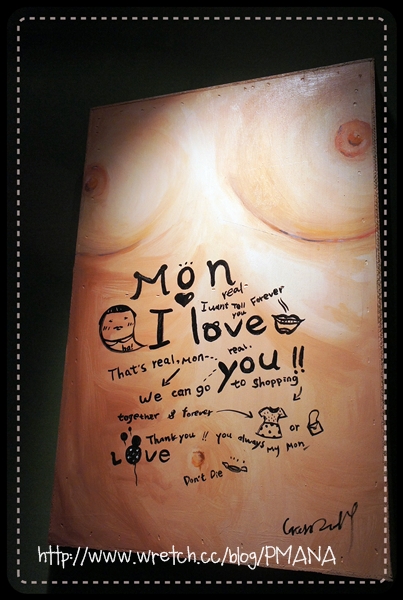 Mön
real-
I want Tell you Forever
I love
ha!
That's real, Mon-- real-
you!!
We can go to Shopping
together & Forever
or
Thank you!! you always my Mon
LOVE
Don't Die
http://www.wretch.cc/blog/PMANA